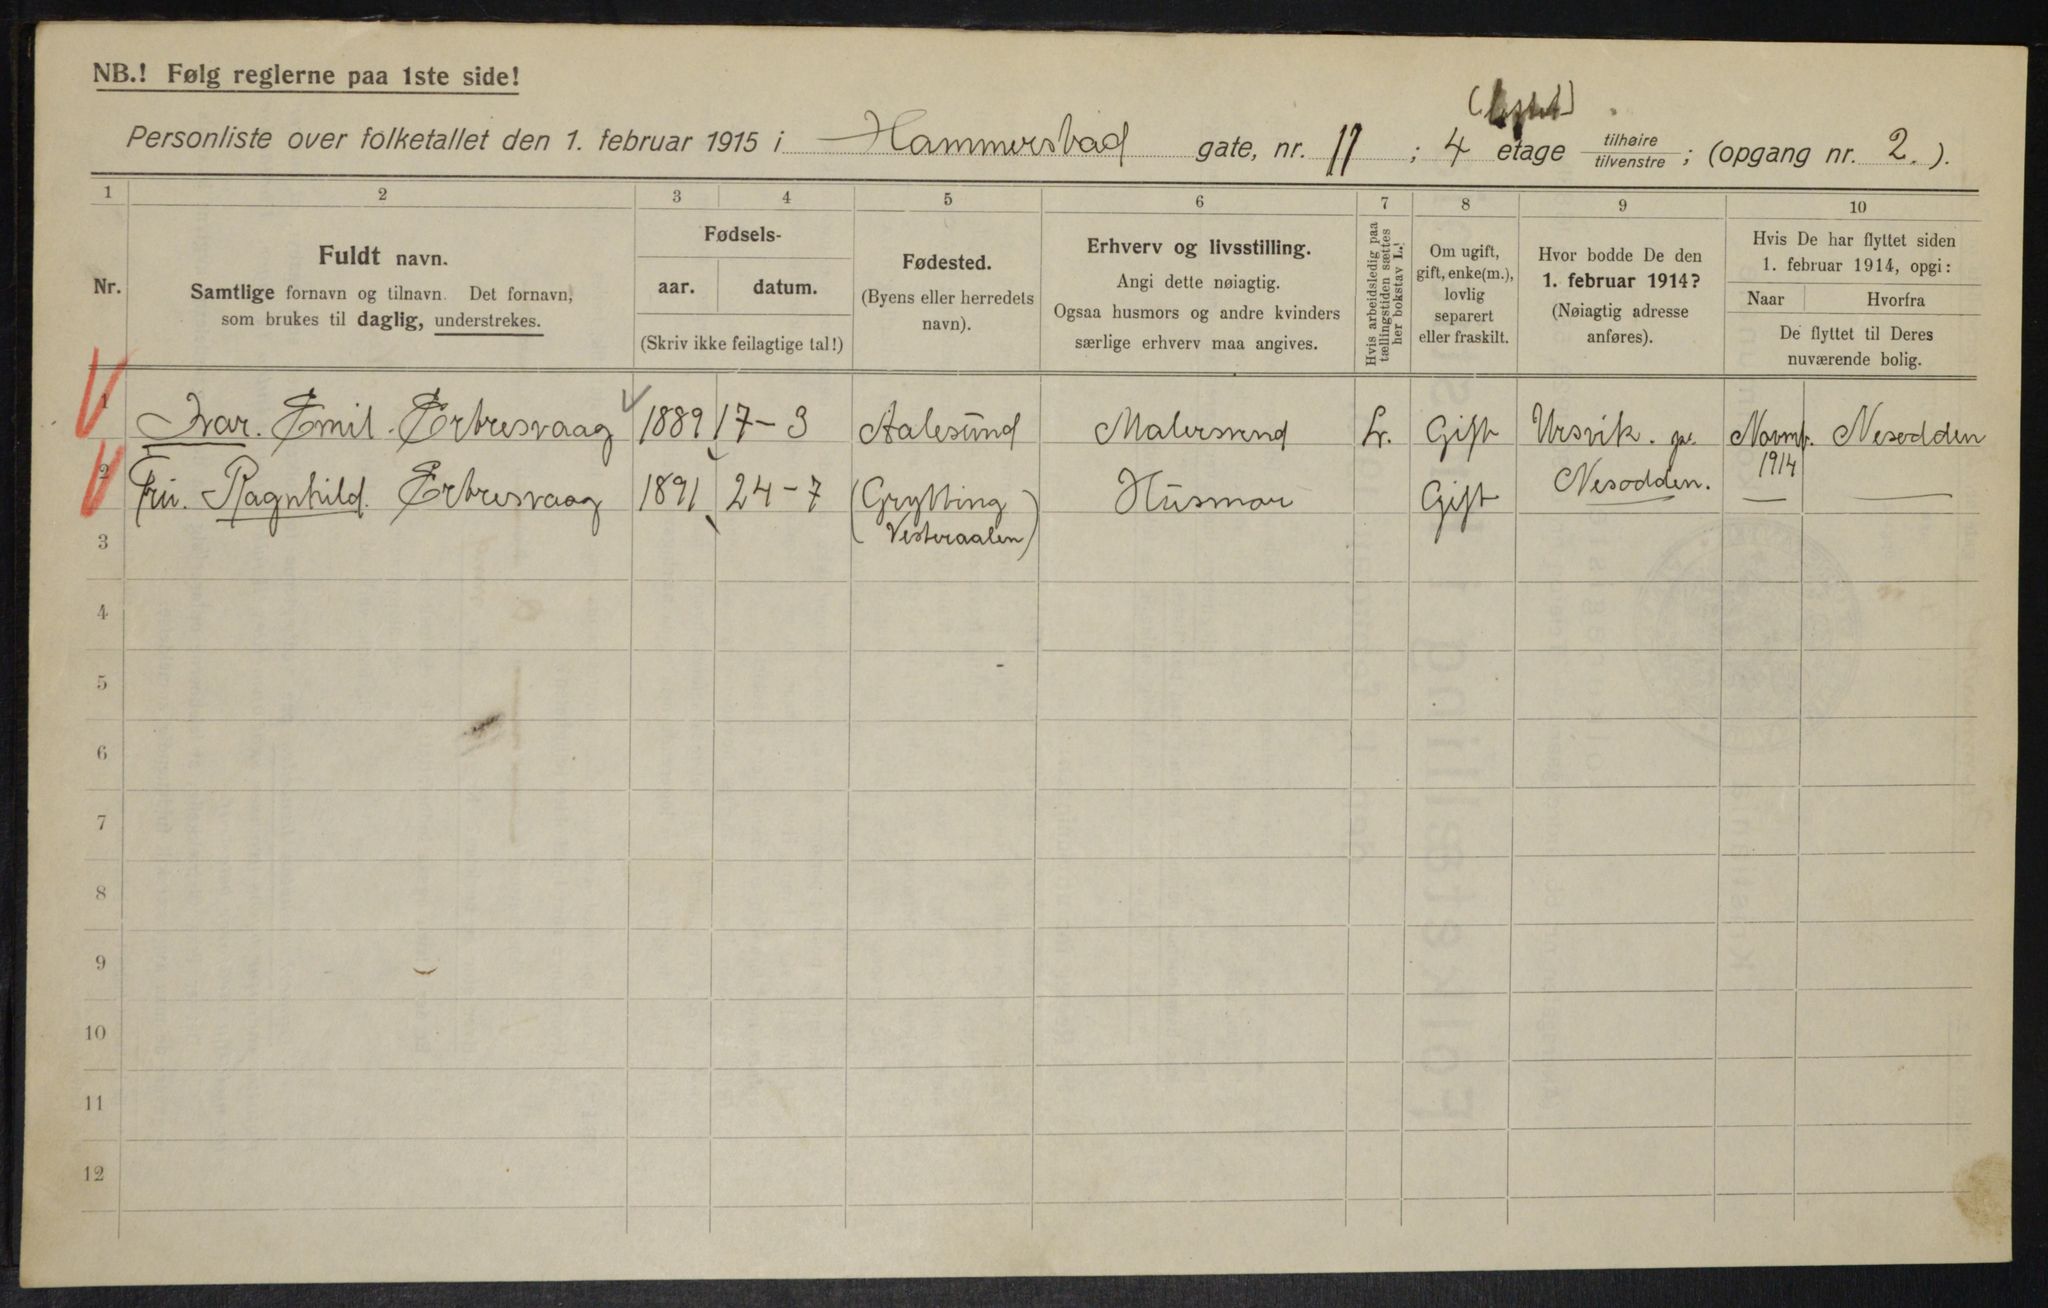 NB.! Følg reglerne paa 1ste side!
Personliste over folketallet den 1. februar 1915 i Hammerstad gate, nr. 11 ; 4 etage tilhøire / tilvenstre ; (opgang nr. 2. ).
1 2 3 4 5 6 7 8 9 10
Nr.
Fuldt navn.
Samtlige fornavn og tilnavn. Det fornavn,
som brukes til daglig, understrekes.
Fødsels-
aar. datum.
(Skriv ikke feilagtige tal!)
Fødested.
(Byens eller herredets
navn).
Erhverv og livsstilling.
Angi dette nøiagtig.
Ogsaa husmors og andre kvinders
særlige erhverv maa angives.
Hvis arbeidsledig paa
tællingstiden sættes
her bokstav L.!
Om ugift,
gift, enke(m.),
lovlig
separert
eller fraskilt.
Hvor bodde De den
1. februar 1914?
(Nøiagtig adresse
anføres).
Hvis De har flyttet siden
1. februar 1914, opgi:
Naar Hvorfra
De flyttet til Deres
nuværende bolig.
1 Ivar. Emil. Erbresvaag 1889 17-3 Aalesund Malersvend L. Gift Ursvik. pr. Novmb. Nesodden
1914
2 Fru. Ragnhild. Erbresvaag 1891 24-7 (Grytting Husmor Gift Nesodden. — —
Vesteraalen)
3
4
5
6
7
8
9
10
11
12